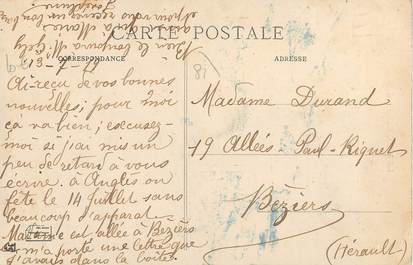 CARTE POSTALE
CORRESPONDANCE
ADRESSE
Ai reçu de vos bonnes
nouvelles; pour moi
ça va bien; escusez-
moi si j'ai mis un
peu de retard à vous
écrire. à Anglès on
fête le 14 Juillet sans
beaucoup d'apparat
Madame est allée à Béziers
m'a porté une lettre que
j'avais dans la boîte.
Madame Durand
19 Allées Paul-Riquet
Béziers
(Hérault)